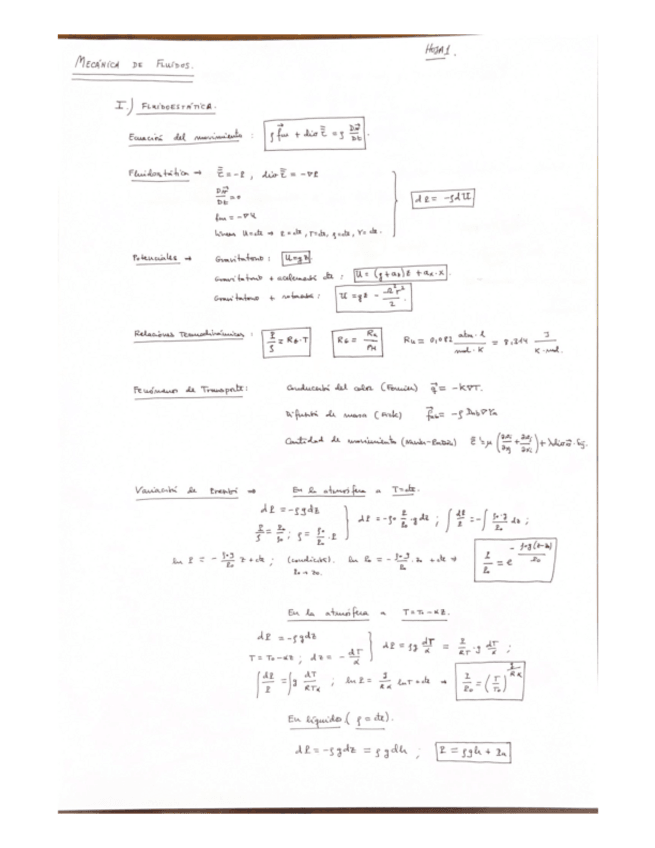 HOJA 1.
MECÁNICA DE FLUIDOS.
I.) FLUIDOESTÁTICA.
Ecuación del movimiento : ρ f⃗m + div τ̿ = ρ Dv⃗/Dt.
Fluidostática → τ̿ = -P , div τ̿ = -∇P
Dv⃗/Dt = 0
dP = -ρdU
fm = -∇U
U=cte → P=cte, T=cte, ρ=cte, Y=cte.
Potenciales → Gravitatorio : U=gz.
Gravitatorio + aceleración cte : U = (g+az)z + ax·x.
Gravitatorio + rotación : U = gz - Ω²r²/2.
Relaciones Termodinámicas : P/ρ = Rg·T Rg = Ru/PM Ru = 0,082 atm·l/mol·K = 8,314 J/K·mol.
Fenómenos de Transporte : Conducción del calor (Fourier) q⃗ = -K∇T.
Difusión de masa (Fick)
Cantidad de movimiento
Variación de Presión → En la atmósfera a T=cte.
dP = -ρgdz
P/ρ = P₀/ρ₀ ; ρ = ρ₀/P₀·P } dP = -ρ₀ P/P₀·g dz ; ∫dP/P = -∫ρ₀·g/P₀ dz ;
ln P = -ρ₀g/P₀ z + cte ; (condición). ln P₀ = -ρ₀·g/P₀·z₀ + cte → P/P₀ = e^(-ρ₀g(z-z₀)/P₀)
P₀ → z₀.
En la atmósfera a T=T₀-αz.
dP = -ρgdz
T = T₀-αz ; dz = -dT/α } dP = ρg dT/α = P/RT·g dT/α ;
∫dP/P = ∫g dT/RTα ; ln P = g/Rα ln T + cte → P/P₀ = (T/T₀)^(g/Rα)
En líquidos ( ρ = cte ).
dP = -ρgdz = ρgdh ; P = ρgh + Pa